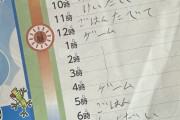 10時 けいたいで
11時 ごはんたべて
12時 ゲーム
1時
2時
3時
4時 ゲーム
5時 ごはん
6時